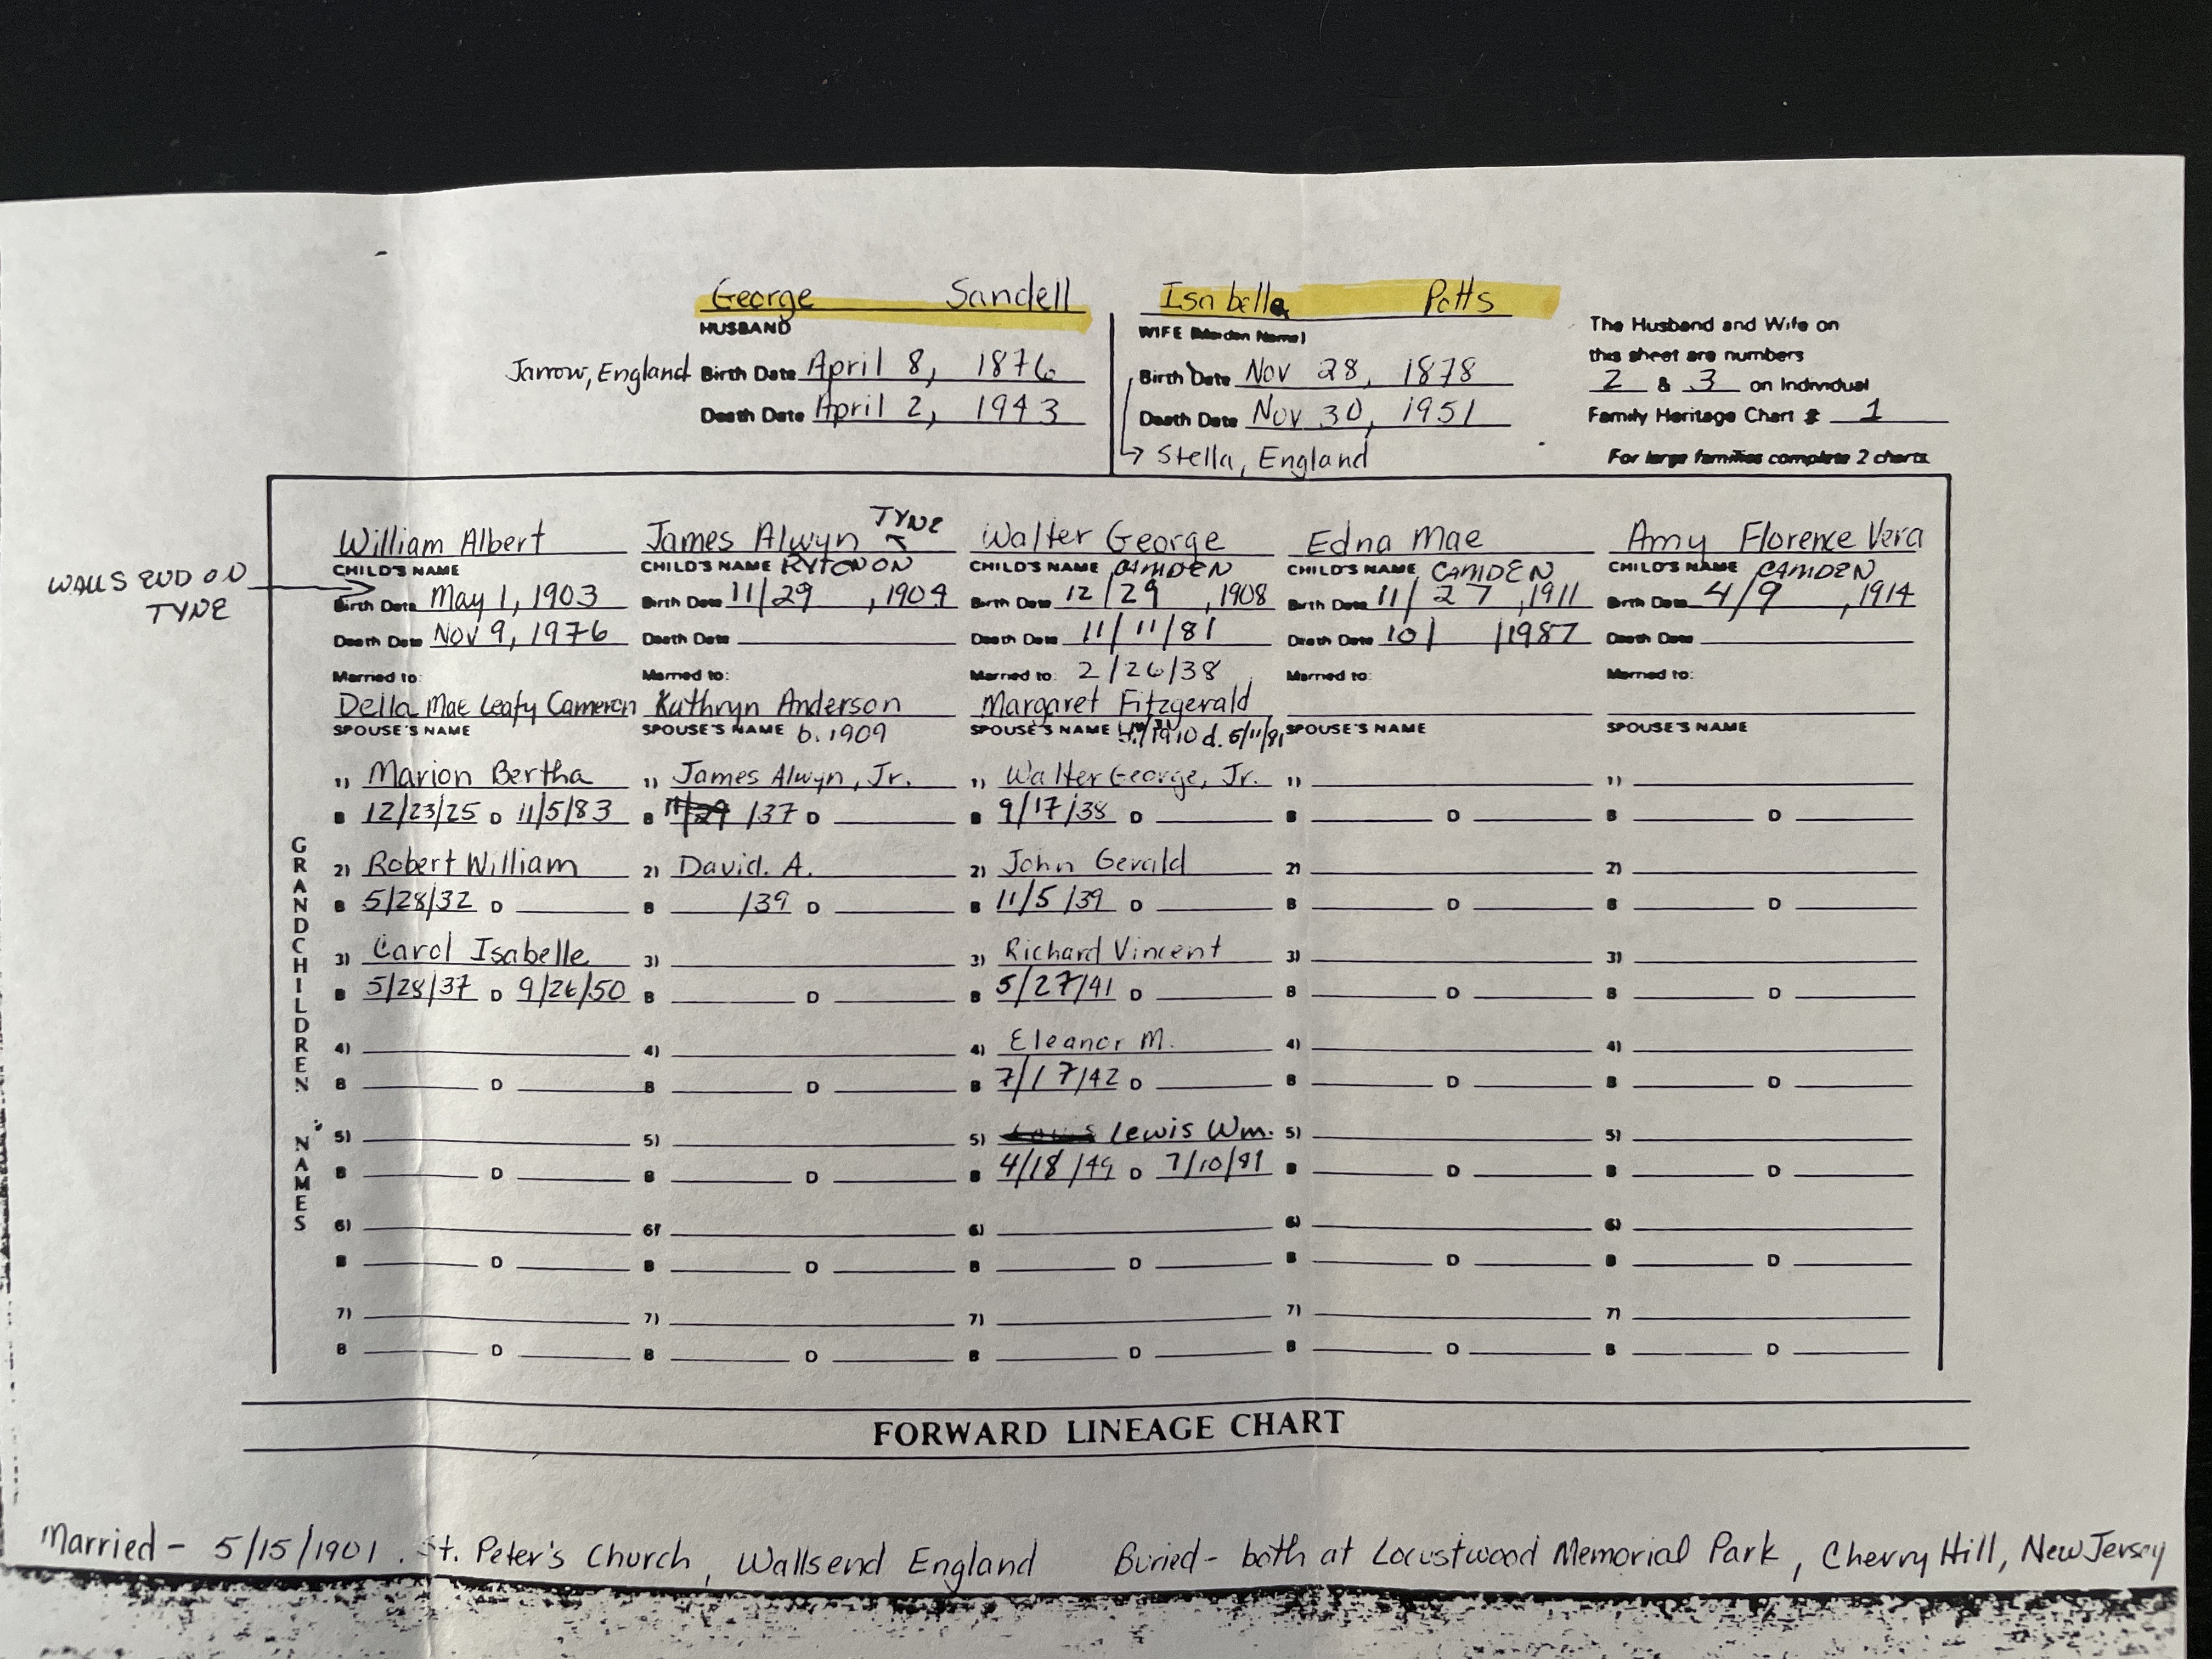 George Sandell
HUSBAND
Jarrow, England Birth Date April 8, 1876
Death Date April 2, 1943
Isabella Potts
WIFE (Maiden Name)
Birth Date Nov 28, 1878
Death Date Nov 30, 1951
↳ Stella, England
The Husband and Wife on
this sheet are numbers
2 & 3 on Individual
Family Heritage Chart # 1
For large families complete 2 charts
WALLSEND ON
TYNE
William Albert
CHILD'S NAME
Birth Date May 1, 1903
Death Date Nov 9, 1976
Married to:
Della Mae Leafy Cameron
SPOUSE'S NAME
GRANDCHILDREN NAMES
1) Marion Bertha
B 12/23/25 D 11/5/83
2) Robert William
B 5/28/32 D
3) Carol Isabelle
B 5/28/37 D 9/26/50
4)
B D
5)
B D
6)
B D
7)
B D
TYNE
James Alwyn
CHILD'S NAME RYTON ON
Birth Date 11/29, 1904
Death Date
Married to:
Kathryn Anderson
SPOUSE'S NAME b. 1909
1) James Alwyn, Jr.
B /37 D
2) David. A.
B /39 D
3)
B D
4)
B D
5)
B D
6)
B D
7)
B D
Walter George
CHILD'S NAME CAMDEN
Birth Date 12/29, 1908
Death Date 11/11/81
Married to: 2/26/38
Margaret Fitzgerald
SPOUSE'S NAME 1910 d.
1) Walter George, Jr.
B 9/17/38 D
2) John Gerald
B 11/5/39 D
3) Richard Vincent
B 5/27/41 D
4) Eleanor M.
B 7/17/42 D
5) Lewis Wm.
B 4/18/49 D 7/10/91
6)
B D
7)
B D
Edna Mae
CHILD'S NAME CAMDEN
Birth Date 11/27, 1911
Death Date 10/ /1987
Married to:
SPOUSE'S NAME
1)
B D
2)
B D
3)
B D
4)
B D
5)
B D
6)
B D
7)
B D
Amy Florence Vera
CHILD'S NAME CAMDEN
Birth Date 4/9, 1914
Death Date
Married to:
SPOUSE'S NAME
1)
B D
2)
B D
3)
B D
4)
B D
5)
B D
6)
B D
7)
B D
FORWARD LINEAGE CHART
Married - 5/15/1901, St. Peter's Church, Wallsend England Buried - both at Locustwood Memorial Park, Cherry Hill, New Jersey